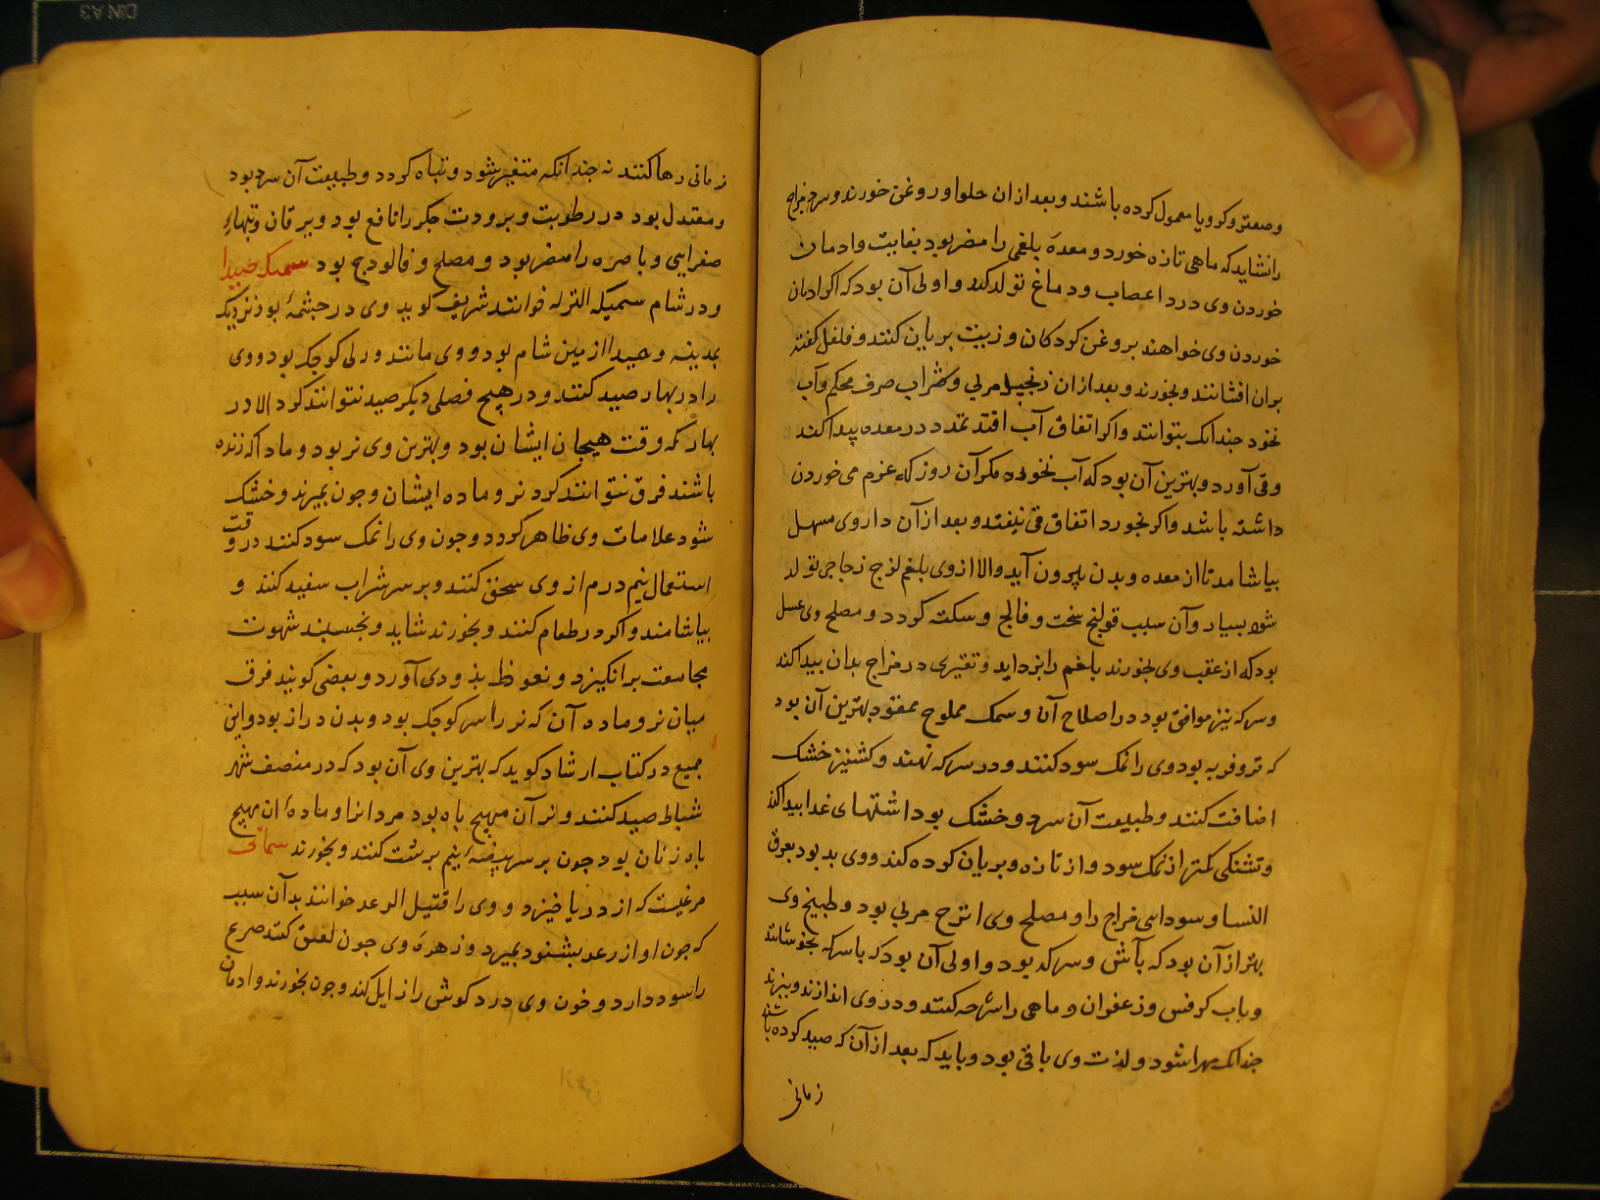 وصعتر و کرویا معمول کرده باشند و بعد از ان حلوا و روغن خورند و سرد مزاج
را نشاید که ماهی تازه خورد و معدهٔ بلغمی را مضر بود بغایت و ادمان
خوردن وی درد اعصاب و دماغ تولد کند و اولی آن بود که اگر ادمان
خوردن وی خواهند بروغن کردکان و زیت بریان کنند و فلفل کفته
بران افشانند و بخورند و بعد از ان زنجبیل مربی و شراب صرف محکم و آب
نخورد چندانک بتوانند و اکر اتفاق آب افتد تمدد در معده پیدا کند
وقی آورد و بهترین آن بود که آب نخورد مکر آن روز که عزم می خوردن
داشته باشد و اکر بخورد اتفاق قی نیفتد و بعد از آن داروی مسهل
بیاشامد تا از معده و بدن بیرون آید والا از وی بلغم لزج زجاجی تولد
شود بسیار و آن سبب قولنج سخت و فالج و سکته کردد و مصلح وی عسل
بود که از عقب وی بخورند بلغم را بزداید و تغیری در مزاج بدان پیدا کند
و سرکه نیز موافق بود در اصلاح آن و سمک مملوح ممقور بهترین آن بود
که تر و فربه بود وی را نمک سود کنند و در سرکه نهند و کشنیز خشک
اضافت کنند و طبیعت آن سرد و خشک بود اشتهای غدا پیدا کند
و تشنکی کمتر از نمک سود و از تازه و بریان کرده کند و وی بد بود بعرق
النسا و سوداوی مزاج را و مصلح وی اترج مربی بود و طبیخ وی
بهتر از آن بود که بآش و سرکه بود و اولی آن بود که با سرکه بجوشانند
و باب کرفس و زعفران و ماهی را شرحه کنند و در وی اندازند و بپزند
چندانک مهرا شود و لذت وی باقی بود و باید که بعد از آن که صید کرده باشند
زمانی
زمانی رها کنند نه چندانکه متغیر شود و تباه کردد و طبیعت آن سرد بود
و معتدل بود در رطوبت و برودت جکر را نافع بود و یرقان و تبهاء
صفرایی و باصره را مضر بود و مصلح وی فالودج بود سمیکه صیدا
و در شام سمیکه الترله خوانند شریف کوید وی در چشمهٔ بود نزدیک
بمدینه و صیدا از مین شام بود و وی مانند ورلی کوچک بود و وی
را در بهار صید کنند و در هیچ فصلی دیکر صید نتوانند کرد الا در
بهار که وقت هیجان ایشان بود و بهترین وی نر بود و ماد اکه زنده
باشند فرق نتوانند کرد نر و ماده ایشان و چون بمیرند و خشک
شود علامات وی ظاهر کردد و چون وی را نمک سود کنند در وقت
استعمال نیم درم از وی سحق کنند و بر سر شراب سفید کنند و
بیاشامند و اکر در طعام کنند و بخورند شاید و بجنبند شهوت
مجامعت برانکیزد و نعوظ بزودی آورد و بعضی کویند فرق
میان نر و ماده آن که نر را سر کوچک بود و بدن دراز بود و ابن
جمیع در کتاب ارشاد کوید که بهترین وی آن بود که در منصف شهر
شباط صید کنند و نر آن مهیج باه بود مردانرا و ماده ان مهیج
باه زنان بود چون بر سر بیضهٔ نیم برشت کنند و بخورند سمانی
مرغیست که از دریا خیزد و وی را قتیل الرعد خوانند بدآن سبب
که چون اواز رعد بشنود بمیرد و زهرهٔ وی چون لعلق کنند صرع
را سود دارد و خون وی درد کوش را زایل کند و چون بخورند و ادمان